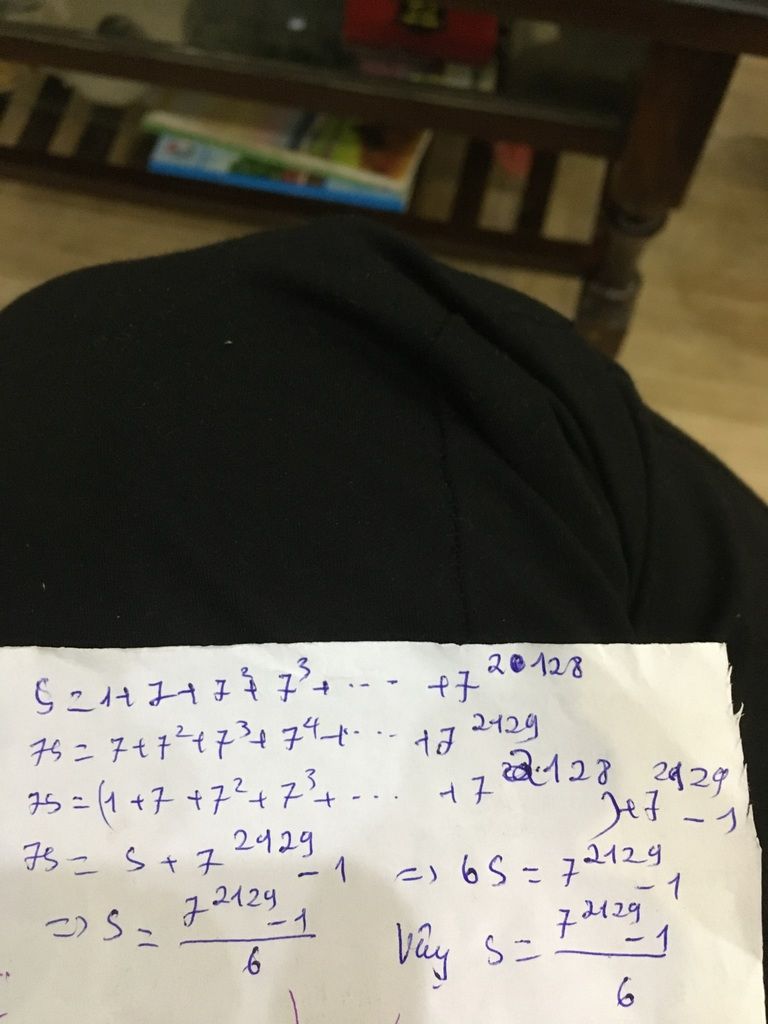 S = 1 + 7 + 7² + 7³ + ... + 7²¹²⁸
7S = 7 + 7² + 7³ + 7⁴ + ... + 7²¹²⁹
7S = (1 + 7 + 7² + 7³ + ... + 7²¹²⁸) + 7²¹²⁹ - 1
7S = S + 7²¹²⁹ - 1 => 6S = 7²¹²⁹ - 1
=> S = (7²¹²⁹ - 1)/6 Vậy S = (7²¹²⁹ - 1)/6